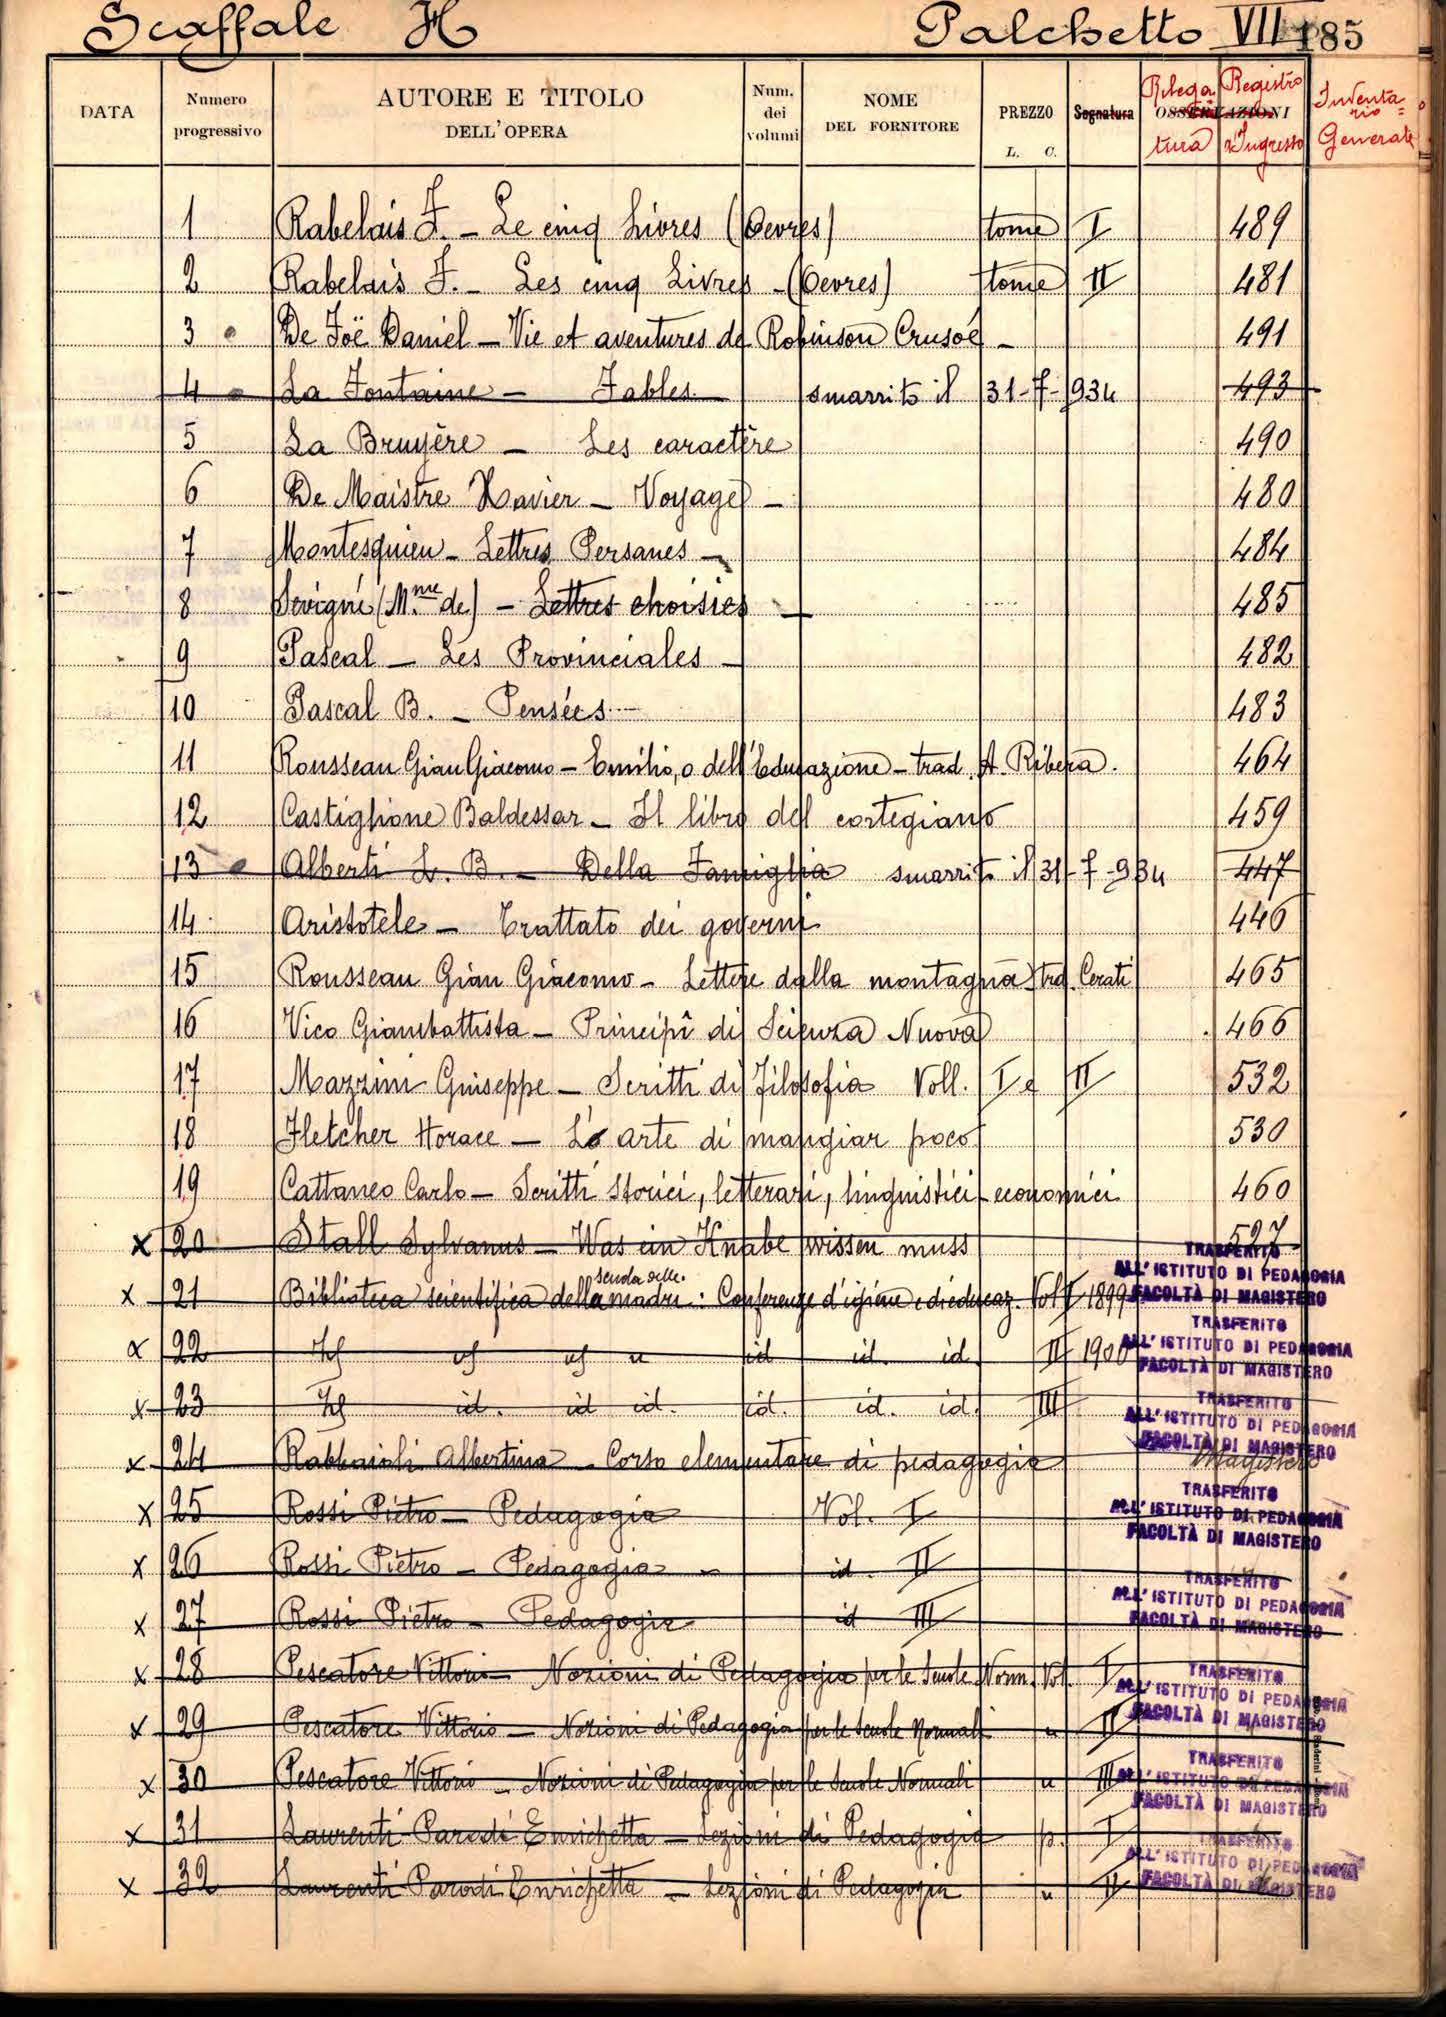 Scaffale H Palchetto VII 185
DATA Numero progressivo AUTORE E TITOLO DELL'OPERA Num. dei volumi NOME DEL FORNITORE PREZZO L. C. Segnatura OSSERVAZIONI Rilegatura Registro d'Ingresso Inventario Generale
1 Rabelais F. – Le cinq Livres (Oevres) tome I 489
2 Rabelais F. – Les cinq Livres – (Oevres) tome II 481
3 De Foë Daniel – Vie et aventures de Robinson Crusoé – 491
4 La Fontaine – Fables – smarrito il 31-7-934 493
5 La Bruyère – Les caractère 490
6 De Maistre Xavier – Voyage – 480
7 Montesquieu – Lettres Persanes – 484
8 Sevigné (M.me de) – Lettres choisies – 485
9 Pascal – Les Provinciales – 482
10 Pascal B. – Pensées – 483
11 Rousseau Gian Giacomo – Emilio, o dell'Educazione – trad. A. Ribera. 464
12 Castiglione Baldessar – Il libro del cortegiano 459
13 Alberti L. B. – Della Famiglia smarrito il 31-7-934 447
14 Aristotele – Trattato dei governi 446
15 Rousseau Gian Giacomo – Lettere dalla montagna – trd. Cerati 465
16 Vico Giambattista – Principî di Scienza Nuova 466
17 Mazzini Giuseppe – Scritti di filosofia Voll. I e II 532
18 Fletcher Horace – L' arte di mangiar poco 530
19 Cattaneo Carlo – Scritti storici, letterari, linguistici – economici 460
x 20 Stall Sylvanus – Was ein Knabe wissen muss 527
TRASFERITO
ALL'ISTITUTO DI PEDAGOGIA
FACOLTÀ DI MAGISTERO
x 21 Biblioteca scientifica della scuola delle madri: Conferenze d'igiene e di educaz. Vol I 1899
TRASFERITO
ALL'ISTITUTO DI PEDAGOGIA
FACOLTÀ DI MAGISTERO
x 22 id id. id. II 1900
x 23 id. id id. id. id. id. III
TRASFERITO
ALL'ISTITUTO DI PEDAGOGIA
FACOLTÀ DI MAGISTERO
x 24 Albertina – Corso elementare di pedagogia Magistero
x 25 Rossi Pietro – Pedagogia Vol. I
TRASFERITO
ALL'ISTITUTO DI PEDAGOGIA
FACOLTÀ DI MAGISTERO
x 26 Rossi Pietro – Pedagogia – id. II
x 27 Rossi Pietro – Pedagogia id III
TRASFERITO
ALL'ISTITUTO DI PEDAGOGIA
FACOLTÀ DI MAGISTERO
x 28 Pescatore Vittorio – Nozioni di Pedagogia per le Scuole Norm. Vol. I
TRASFERITO
ALL'ISTITUTO DI PEDAGOGIA
FACOLTÀ DI MAGISTERO
x 29 Pescatore Vittorio – Nozioni di Pedagogia per le Scuole Normali " II
x 30 Pescatore Vittorio – Nozioni di Pedagogia per le Scuole Normali " III
TRASFERITO
ALL'ISTITUTO DI PEDAGOGIA
FACOLTÀ DI MAGISTERO
x 31 Laurenti Parodi Enrichetta – Lezioni di Pedagogia p. I
x 32 Laurenti Parodi Enrichetta – Lezioni di Pedagogia " II
TRASFERITO
ALL'ISTITUTO DI PEDAGOGIA
FACOLTÀ DI MAGISTERO